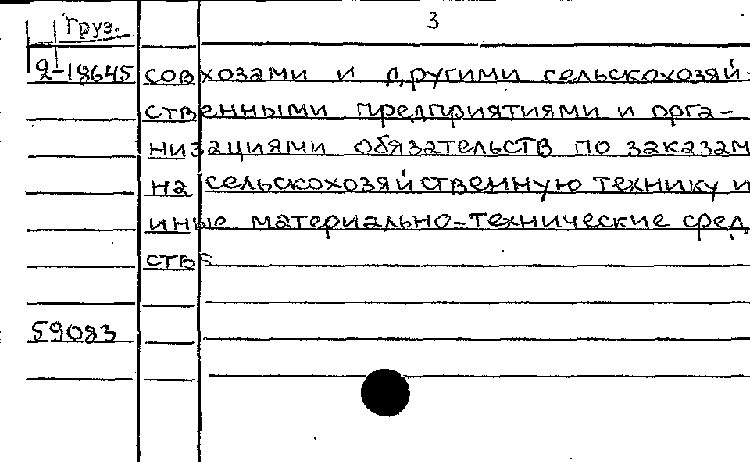 Груз. 3
2-18645 совхозами и другими сельскохозяй-
ственными предприятиями и орга-
низациями обязательств по заказам
на сельскохозяйственную технику и
иные материально-технические сред
ства
59083